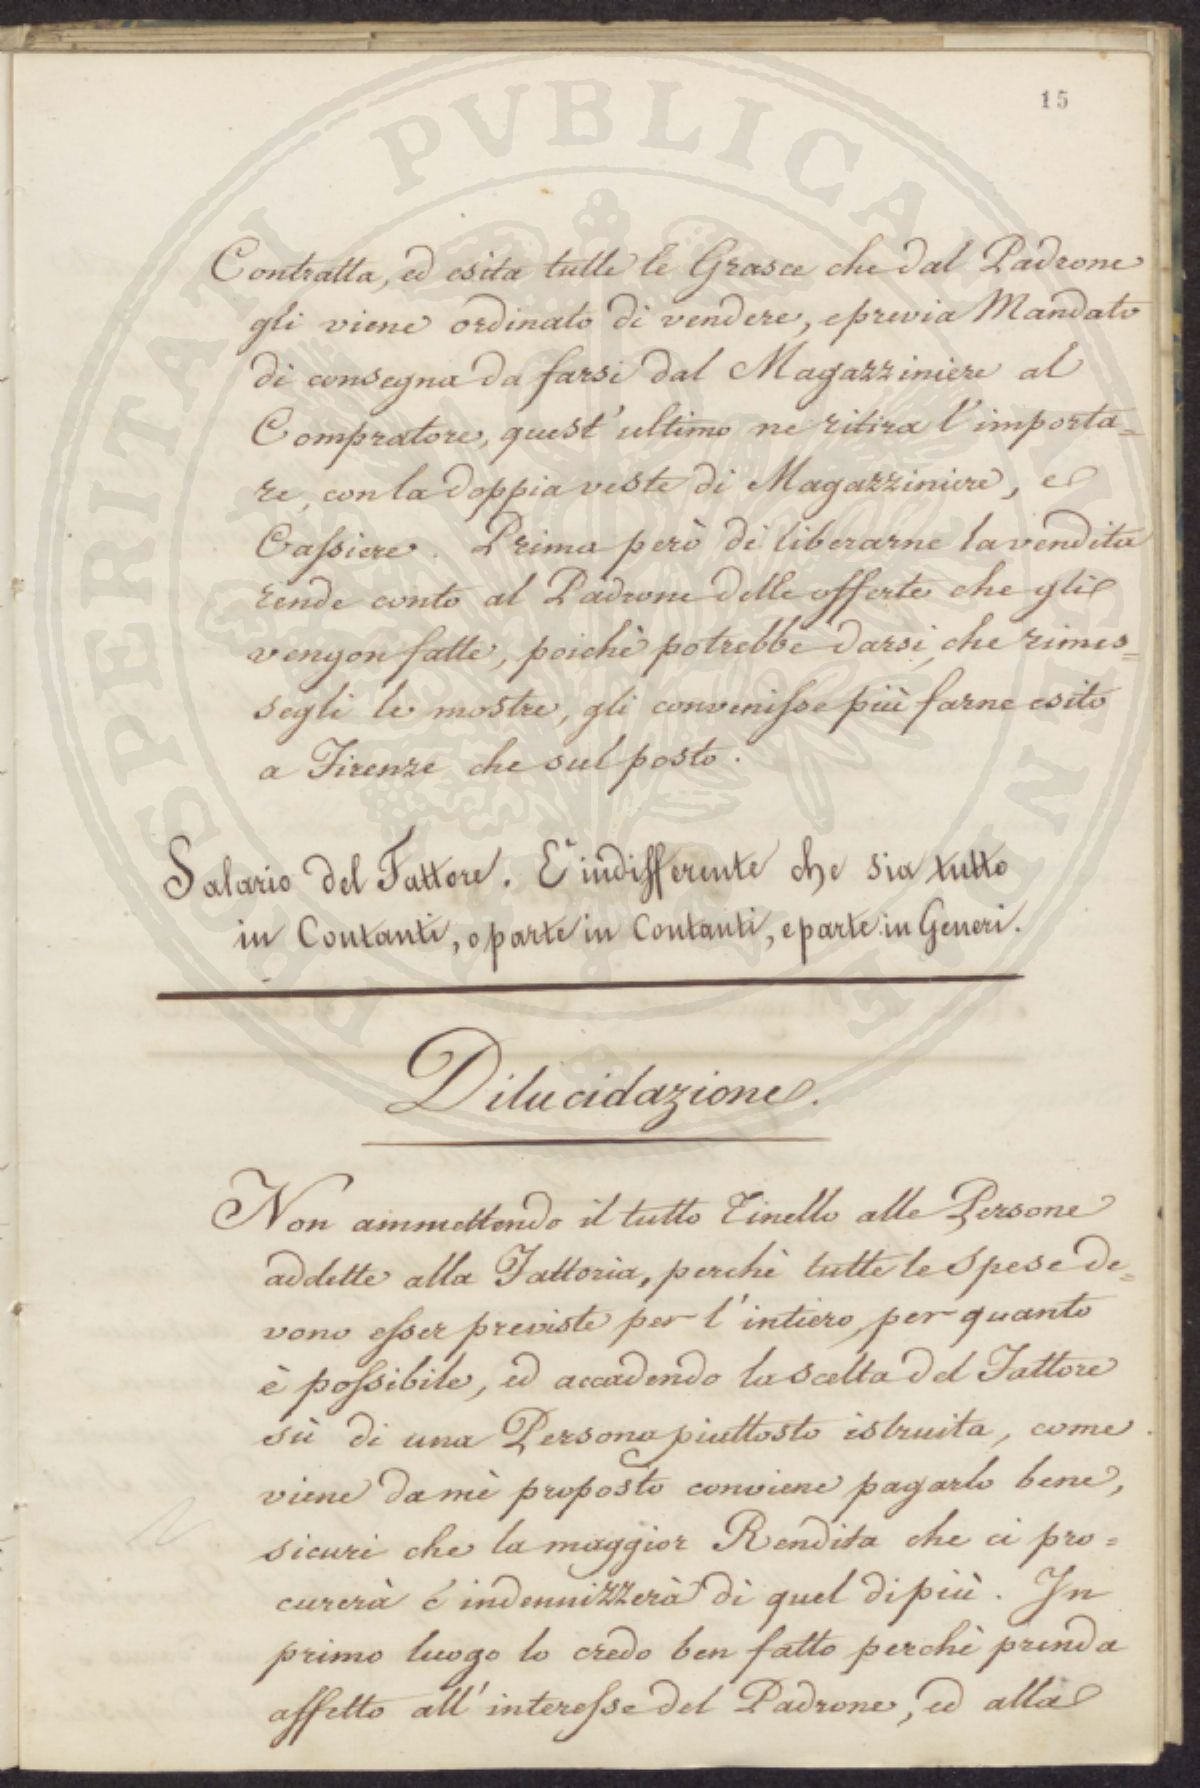 15
Contratta, ed esita tutte le Grasce che dal Padrone
gli viene ordinato di vendere, e previa Mandato
di consegna da farsi dal Magazziniere al
Compratore, quest' ultimo ne ritira l' importa=
re, con la doppia veste di Magazziniere, e
Cassiere. Prima però di liberarne la vendita
rende conto al Padrone delle offerte che gli
vengon fatte, poichè potrebbe darsi, che rimes=
segli le mostre, gli convenisse più farne esito
a Firenze che sul posto.
Salario del Fattore. E' indifferente che sia tutto
in Contanti, o parte in Contanti, e parte in Generi.
Dilucidazione.
Non ammettendo il tutto Tinello alle Persone
addette alla Fattoria, perchè tutte le Spese de=
vono esser previste per l' intiero, per quanto
è possibile, ed accadendo la scelta del Fattore
sù di una Persona piuttosto istruita, come
viene da mè proposto conviene pagarlo bene,
sicuri che la maggior Rendita che ci pro=
curerà c' indennizzerà di quel di più. In
primo luogo lo credo ben fatto perchè prenda
affetto all' interesse del Padrone, ed alla
PROSPERITATI PVBLICAE